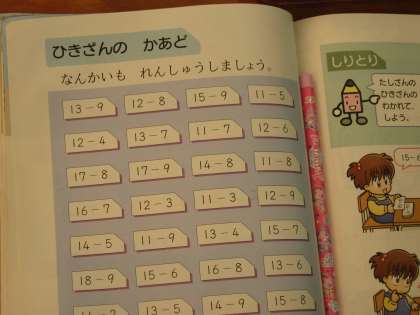 ひきざんの かあど
なんかいも れんしゅうしましょう。
13-9 12-8 15-9 11-5
12-4 13-7 11-7 12-6
17-8 17-9 14-8 11-8
16-7 12-3 11-3 12-9
14-5 11-9 13-4 15-7
18-9 15-6 16-8 13-6
13-5 14-9 15-8
しりとり
たしざんの
ひきざんの
わかれて、
しよう。
15-8